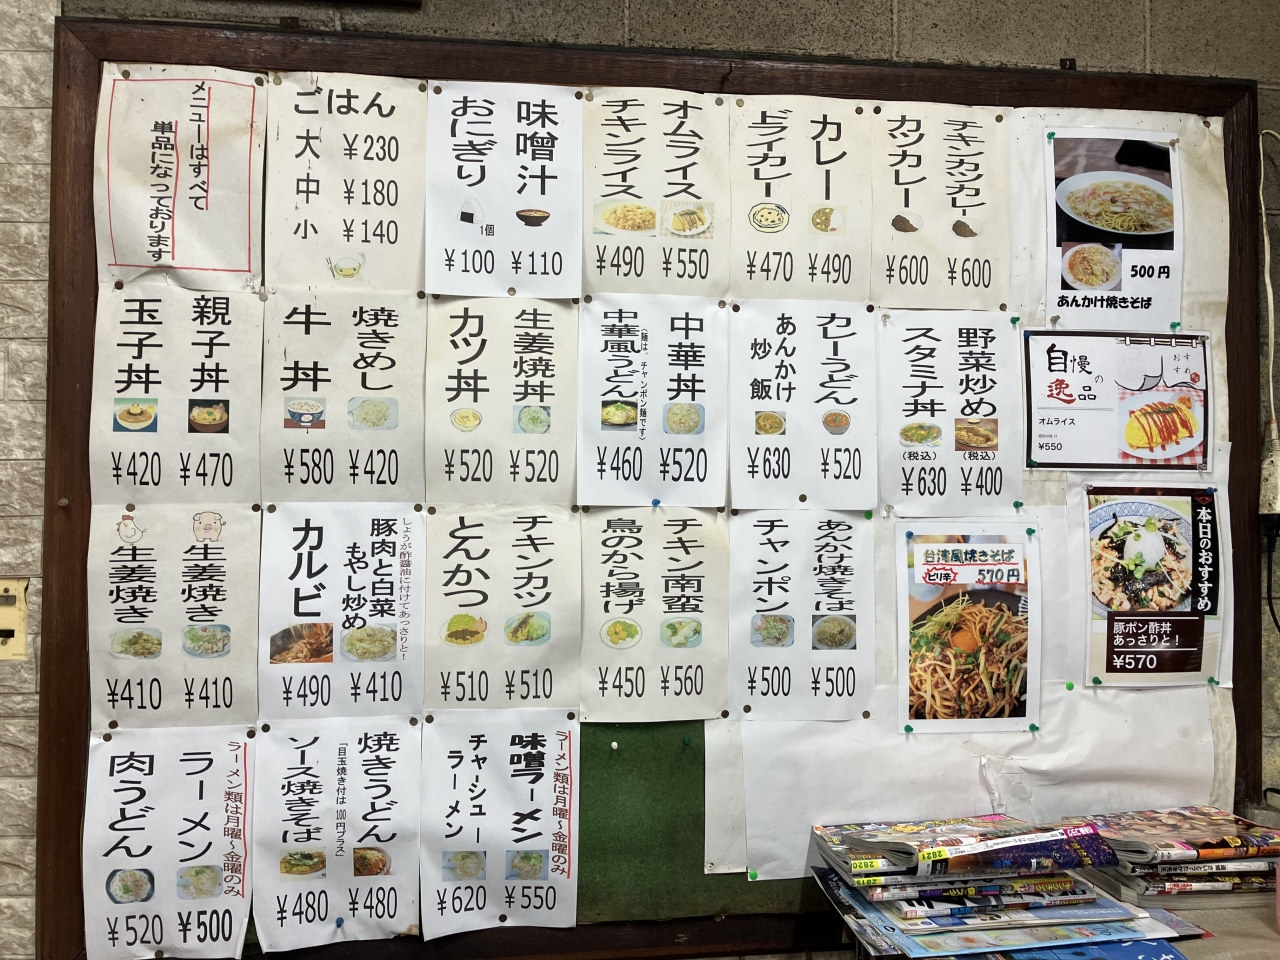 メニューはすべて
単品になっております
ごはん
大 ￥230
中 ￥180
小 ￥140
味噌汁
￥110
おにぎり
1個
￥100
オムライス
￥550
チキンライス
￥490
カレー
￥490
ドライカレー
￥470
チキンカツカレー
￥600
カツカレー
￥600
500円
あんかけ焼きそば
親子丼
￥470
玉子丼
￥420
焼きめし
￥420
牛丼
￥580
生姜焼丼
￥520
カツ丼
￥520
中華丼
￥520
中華風うどん
(麺は、チャンポン麺です)
￥460
カレーうどん
￥520
あんかけ
炒飯
￥630
野菜炒め
(税込)
￥400
スタミナ丼
(税込)
￥630
自慢の
逸品
おすすめ
オムライス
¥550
生姜焼き
￥410
生姜焼き
￥410
しょうが酢醤油に付けてあっさりと!
豚肉と白菜
もやし炒め
￥410
カルビ
￥490
チキンカツ
￥510
とんかつ
￥510
チキン南蛮
￥560
鳥のから揚げ
￥450
あんかけ焼きそば
￥500
チャンポン
￥500
台湾風焼きそば
ピリ辛 570円
本日のおすすめ
豚ポン酢丼
あっさりと!
¥570
ラーメン類は月曜～金曜のみ
ラーメン
￥500
肉うどん
￥520
焼きうどん
￥480
「目玉焼き付は100円プラス」
ソース焼きそば
￥480
ラーメン類は月曜～金曜のみ
味噌ラーメン
￥550
チャーシュー
ラーメン
￥620
2820
2821
2819